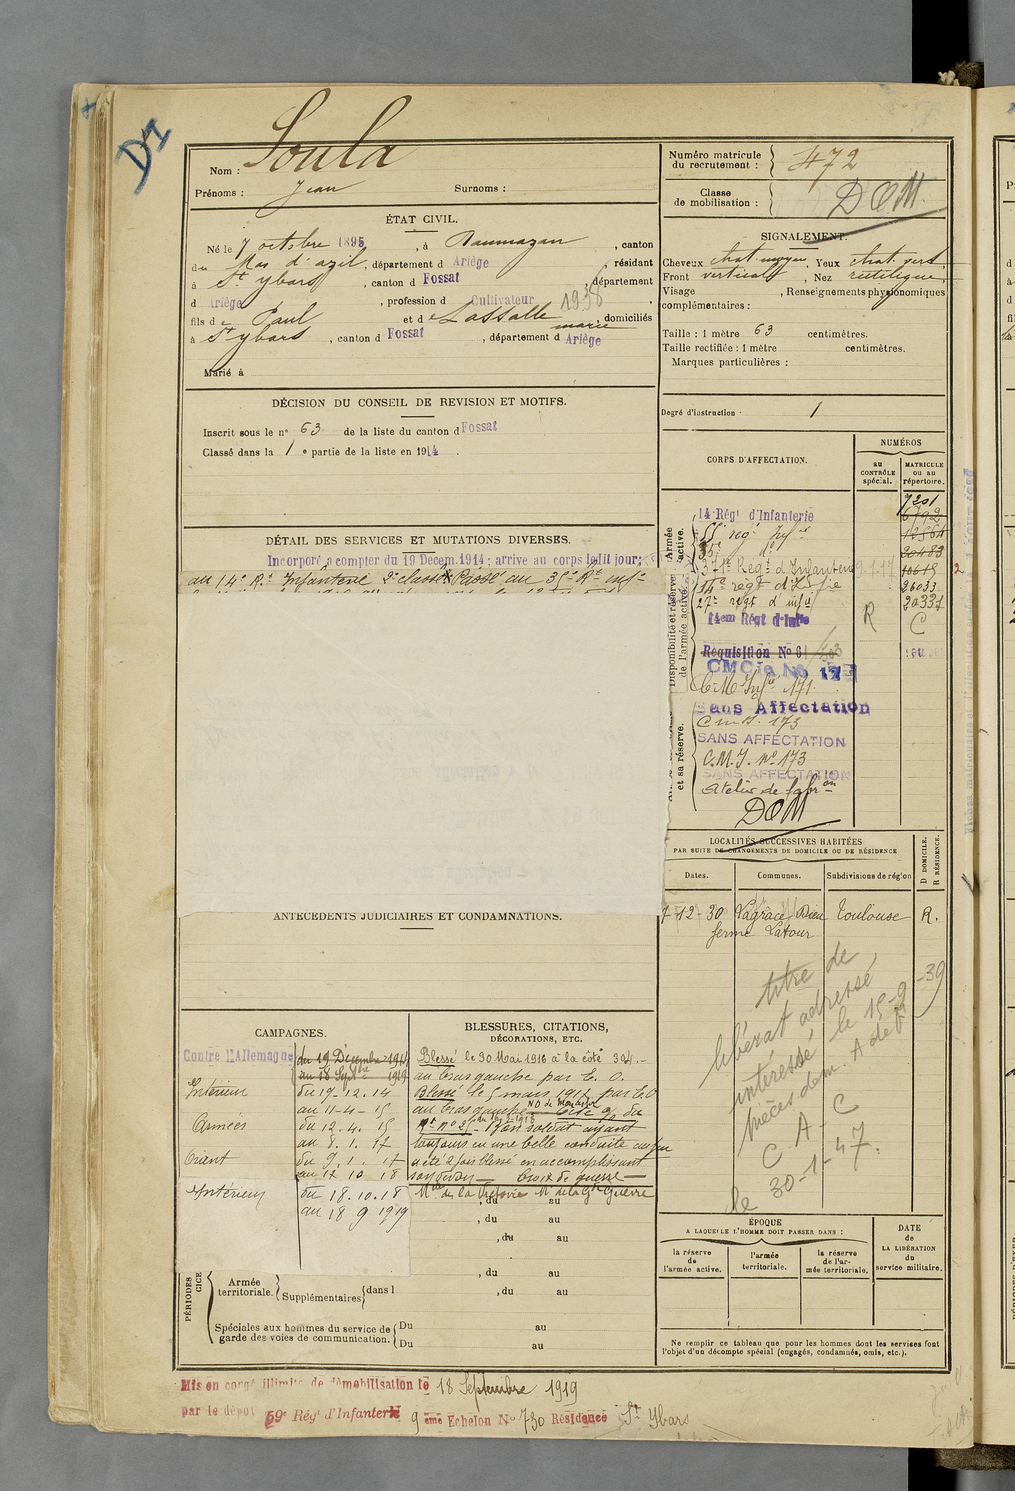 D1
Nom : Soula
Prénoms : Jean Surnoms :
ÉTAT CIVIL.
Né le 7 octobre 1895, à Daumazan, canton
du Mas d'azil, département d Ariège, résidant
à St ybars, canton d Fossat, département
d Ariège, profession d Cultivateur 1938
fils de Paul et de Lassalle marie, domiciliés
à St ybars, canton d Fossat, département d Ariège
Marié à
DÉCISION DU CONSEIL DE REVISION ET MOTIFS.
Inscrit sous le n° 63 de la liste du canton d Fossat
Classé dans la 1 e partie de la liste en 1914.
DÉTAIL DES SERVICES ET MUTATIONS DIVERSES.
Incorporé a compter du 19 Décem. 1914; arrive au corps ledit jour;
au 14e Rt Infanterie 2e classe Passé au
ANTÉCÉDENTS JUDICIAIRES ET CONDAMNATIONS.
CAMPAGNES.
Contre l'Allemagne du 19 Décembre 1914
au 18 Septbre 1919
Intérieur du 19.12.14
au 11-4-15
Armées du 12.4.15
au 8.1.17
Orient du 9.1.17
au 17 10 18
Intérieur du 18.10.18
au 18 9 1919
BLESSURES, CITATIONS,
DÉCORATIONS, ETC.
Blessé le 30 Mai 1916 à la côte 304.-
au bras gauche par E. O.
Blessé le 5 mars 1917 par E.O
au bras gauche
bon soldat ayant
toujours eu une belle conduite
a été 2 fois blessé en accomplissant
son devoir - Croix de guerre -
Mlle de la Victoire Mlle de la Gde Guerre
, du au
, du au
, du au
, du au
PÉRIODES
Armée
territoriale. Supplémentaires dans l , du au
Spéciales aux hommes du service de
garde des voies de communication. Du au
Du au
Numéro matricule
du recrutement : 472
Classe
de mobilisation : DOM
SIGNALEMENT.
Cheveux chat moyen, Yeux chat. vert,
Front vertical, Nez rectiligne,
Visage , Renseignements physionomiques
complémentaires :
Taille : 1 mètre 63 centimètres.
Taille rectifiée : 1 mètre centimètres.
Marques particulières :
Degré d'instruction : 1
CORPS D'AFFECTATION.
NUMÉROS
au
CONTRÔLE
spécial.
MATRICULE
ou au
répertoire.
Armée
active.
Disponibilité et réserve
de l'armée active.
et sa réserve.
7201
14 Régt d'Infanterie 6792
55 reg Infie
357 do 20483
371e Régt d'Infanterie 9.1.17 10615 2
14e regt d'Infie 26033
27e regt d'infie 20337
14em Régt d'Infie R C
Réquisition No 6
CMCie No 173
C.M. Infie 171.
Sans Affectation
C m I. 173
SANS AFFECTATION
C.M.I. no 173
SANS AFFECTATION
Atelier de fabron
DOM
LOCALITÉS SUCCESSIVES HABITÉES
PAR SUITE DE CHANGEMENTS DE DOMICILE OU DE RÉSIDENCE
Dates. Communes. Subdivisions de région
D DOMICILE.
R RÉSIDENCE.
7-12-30 Lagrace Dieu Toulouse R.
ferme Latour
titre de
libérat adressé
intéressé le 15-9-39
pièces dem. A def
C A C
le 30-1-47.
ÉPOQUE
A LAQUELLE L'HOMME DOIT PASSER DANS :
la réserve
de
l'armée active.
l'armée
territoriale.
la réserve
de l'ar-
mée territoriale.
DATE
de
LA LIBÉRATION
du
service militaire.
Ne remplir ce tableau que pour les hommes dont les services font
l'objet d'un décompte spécial (engagés, condamnés, omis, etc.).
Mis en congé illimité de démobilisation le 18 Septembre 1919
par le dépot 59e Régt d'Infanterie 9 eme Echelon No 730 Résidence St Ybars